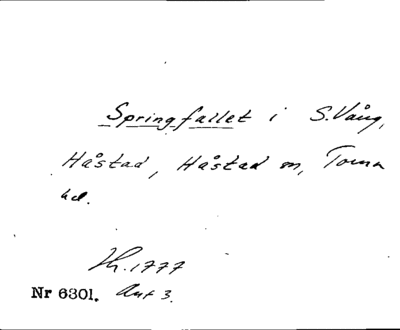 Springfallet i S. Vång,
Håstad, Håstad sn, Torna
hd.
Th. 1777
Nr 6301. Akt 3.